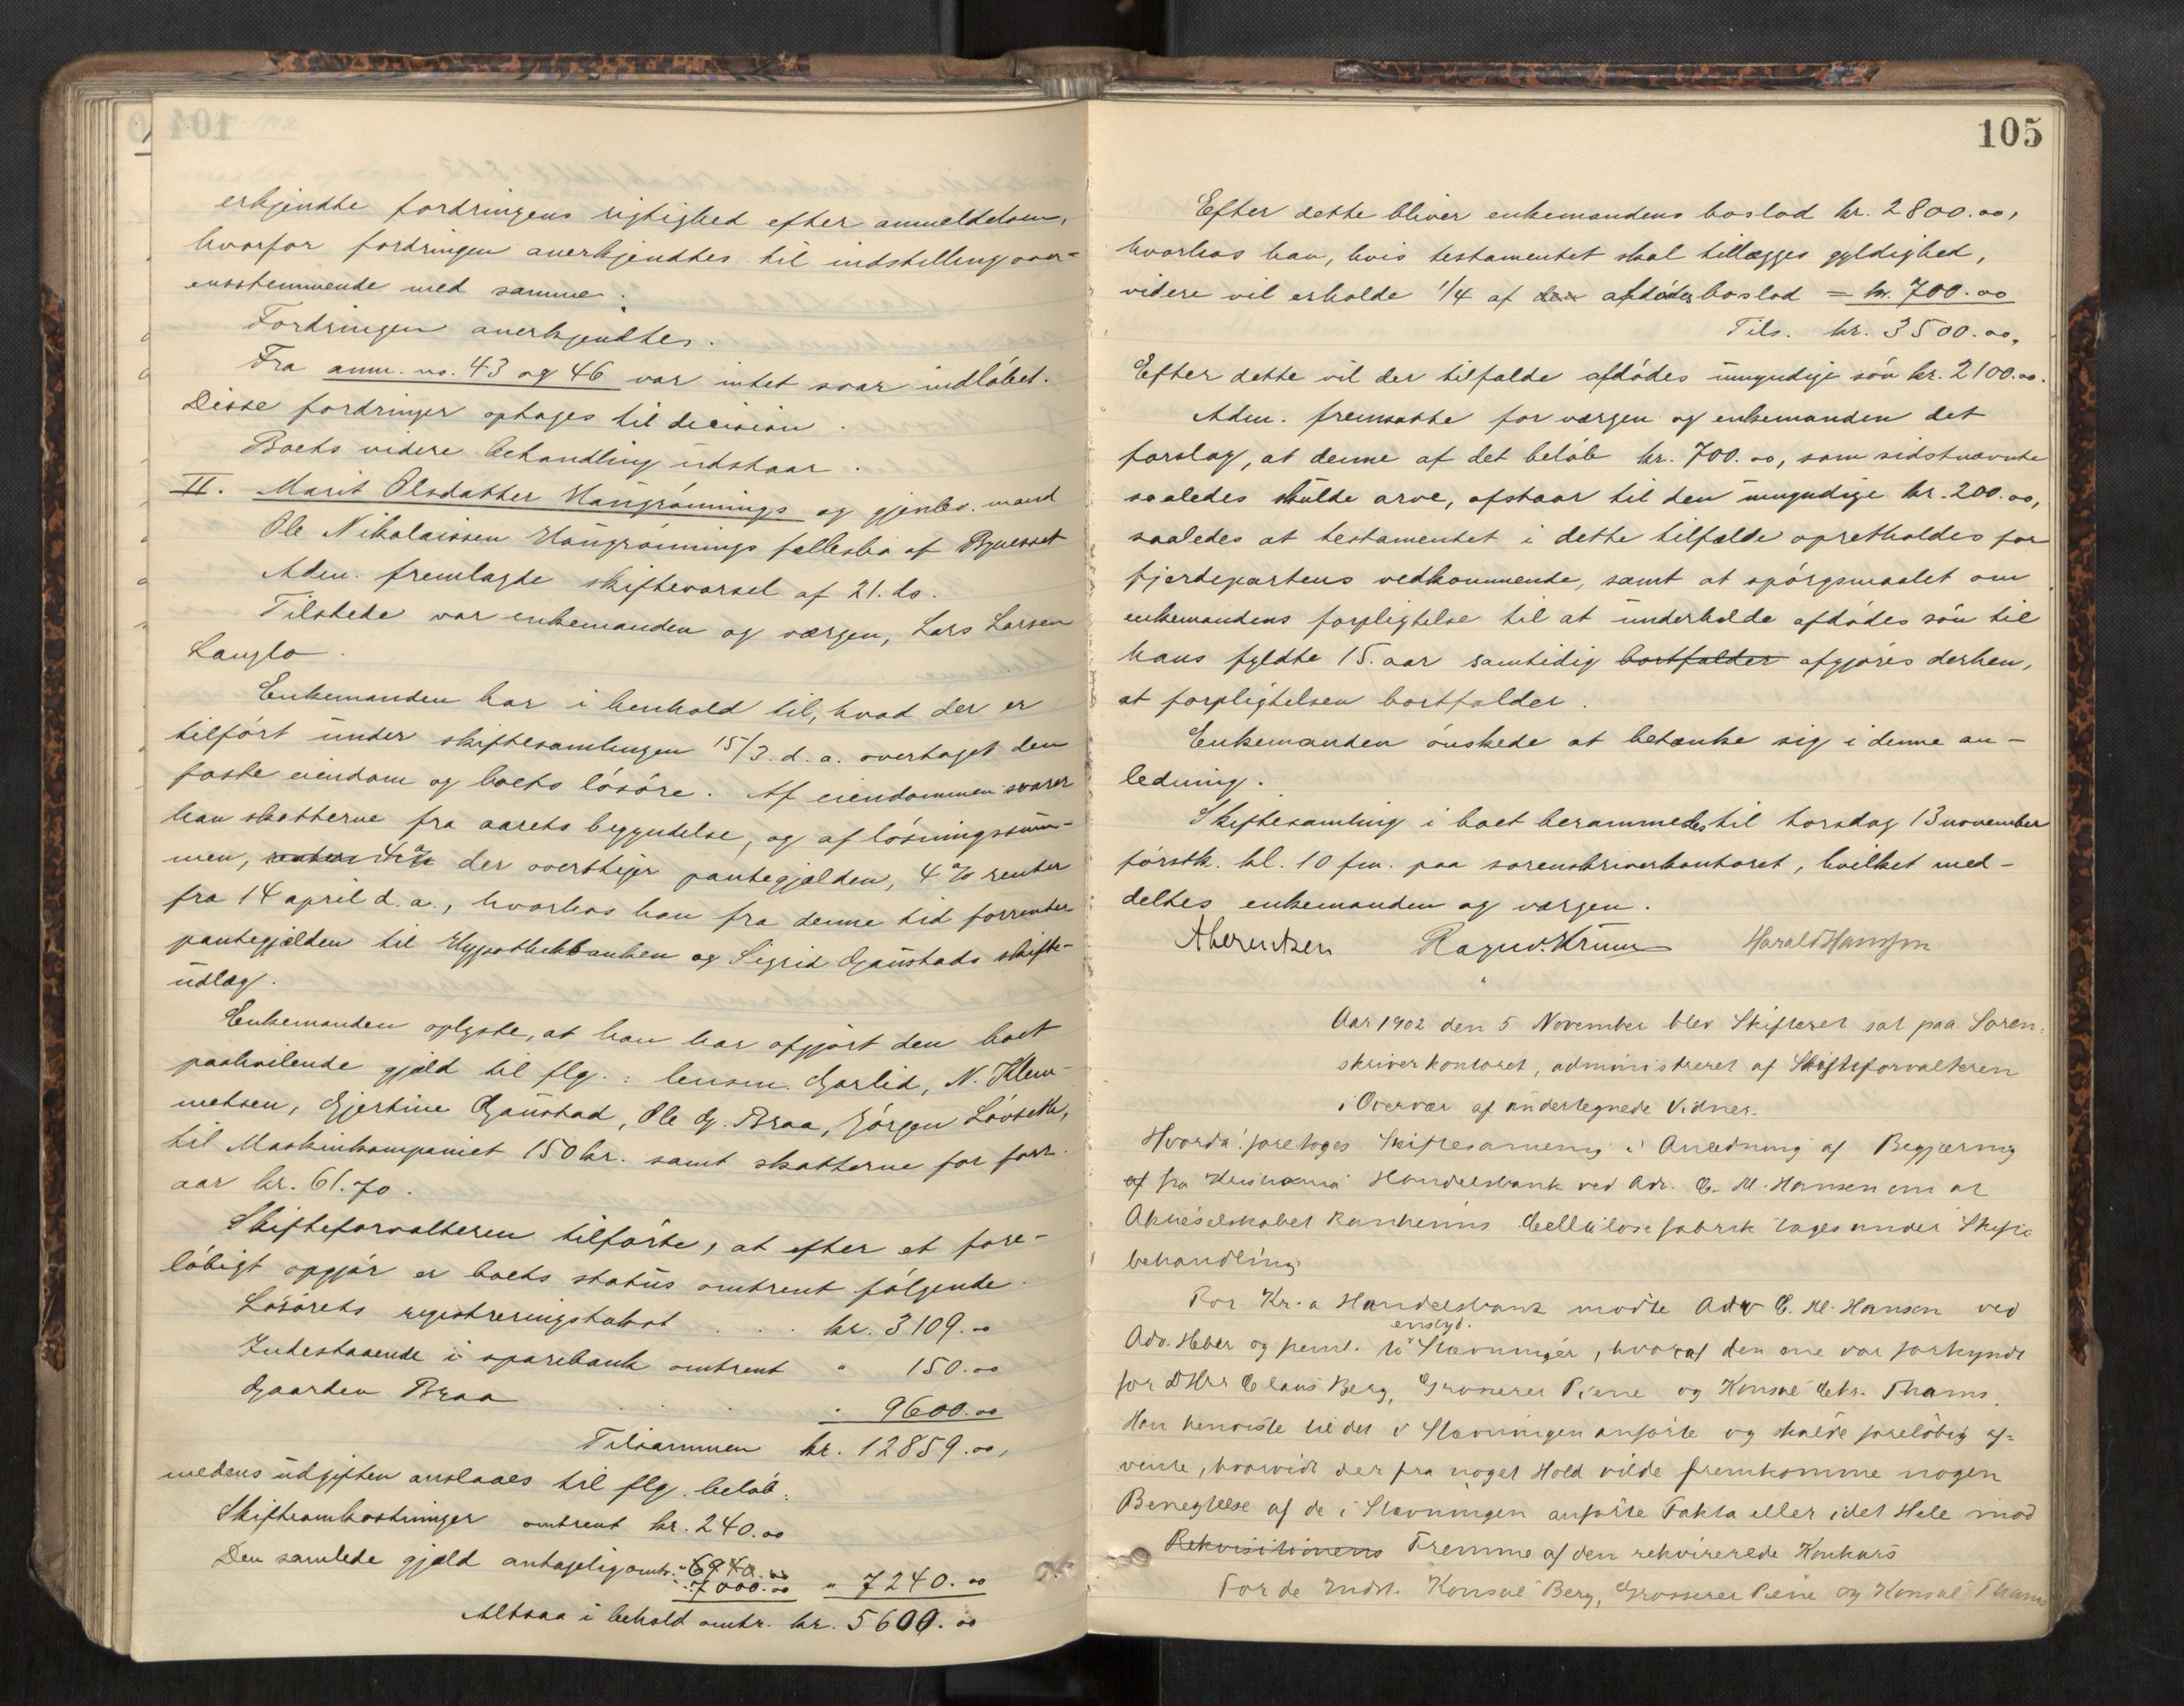 erkjendte fordringens rigtighed efter anmeldelsen,
hvorfor fordringen anerkjendtes til indstilling over-
ensstemmende med samme.
Fordringen anerkjendtes.
Fra anm. no. 43 og 46 var intet svar indløbet.
Disse fordringer optages til decision.
Boets videre behandling udstaar.
II. Marit Olsdatter Haugrønnings og gjenlev. mand
Ole Nikolaissen Haugrønnings fællesbo af Bynesset
Adm. fremlagte skiftevarsel af 21. ds.
Tilstede var enkemanden og værgen, Lars Larsen
Langlo.
Enkemanden har i henhold til, hvad der er
tilført under skiftesamlingen 15/3. d. a. overtaget den
faste eiendom og boets løsøre. Af eiendommen svarer
han skatterne fra aarets begyndelse, og af løsningssum-
men, renter 4% der overstiger pantegjælden, 4% renter
fra 14 april d. a., hvorhos han fra denne tid forrenter
pantegjælden til Hypothekbanken og Sigrid Gaustads skifte-
udlæg.
Enkemanden oplyste, at han har afgjort den boet
paahvilende gjæld til flg.: lensm. Garlid, N. Klem-
metsen, Gjertine Gaustad, Ole G. Braa, Jørgen Løvseth,
til Maskinkompaniet 150 kr. samt skatterne for forr.
aar kr. 61.70.
Skifteforvalteren tilførte, at efter et fore-
løbigt opgjør er boets status omtrent følgende.
Løsørets registreringstakst . . . kr. 3109.00
Indestaaende i sparebank omtrent " 150.00
Gaarden Braa . . . . " 9600.00
Tilsammen kr. 12859.00,
medens udgiften anslaaes til flg. beløb:
Skifteomkostninger omtrent kr. 240.00
Den samlede gjæld antagelig omtr. " 6940.00
" 7000.00 " 7240.00
Altsaa i behold omtr. kr. 5600.00
105
Efter dette bliver enkemandens boslod kr. 2800.00,
hvorhos han, hvis testamentet skal tillægges gyldighed,
videre vil erholde 1/4 af den afdødes boslod = kr. 700.00
Tils. kr. 3500.00,
Efter dette vil der tilfalde afdødes umyndige søn kr. 2100.00.
Adm. fremsatte for værgen og enkemanden det
forslag, at denne af det beløb kr. 700.00, som sidstnævnte
saaledes skulde arve, afstaar til den umyndige kr. 200.00,
saaledes at testamentet i dette tilfælde opretholdes for
fjerdepartens vedkommende, samt at spørgsmaalet om
enkemandens forpligtelse til at underholde afdødes søn til
hans fyldte 15. aar samtidig bortfalder afgjøres derhen,
at forpligtelsen bortfalder.
Enkemanden ønskede at betænke sig i denne an-
ledning.
Skiftesamling i boet berammedes til torsdag 13 november
førstk. kl. 10 fm. paa sorenskriverkontoret, hvilket med-
deltes enkemanden og værgen.
Harald Hansen
Aar 1902 den 5 November blev Skifteret sat paa Soren-
skriverkontoret, administreret af Skifteforvalteren
i Overvær af undertegnede Vidner.
Hvorda: foretoges Skiftesamling i Anledning af Begjæring
af fra Kristiania Handelsbank ved Adv. C. M. Hansen om at
Aktieselskabet Ranheims Cellulosefabrik tages under Skifte
behandling
For Kr.a Handelsbank mødte Adv C. M. Hansen ved
enslyd.
Adv. Heber og freml. to Stævninger, hvoraf den ene var forkyndt
for DHrr Claus Berg, Grosserer Piene og Konsul Chr. Thams.
Han henviste til det i Stævningen anførte og skulde foreløbig af-
vente, hvorvidt der fra noget Hold vilde fremkomme nogen
Benegtelse af de i Stævningen anførte Fakta eller idet Hele mod
Rekvisitionens Fremme af den rekvirerede Konkurs
For de Indst. Konsul Berg, Grosserer Piene og Konsul Thams